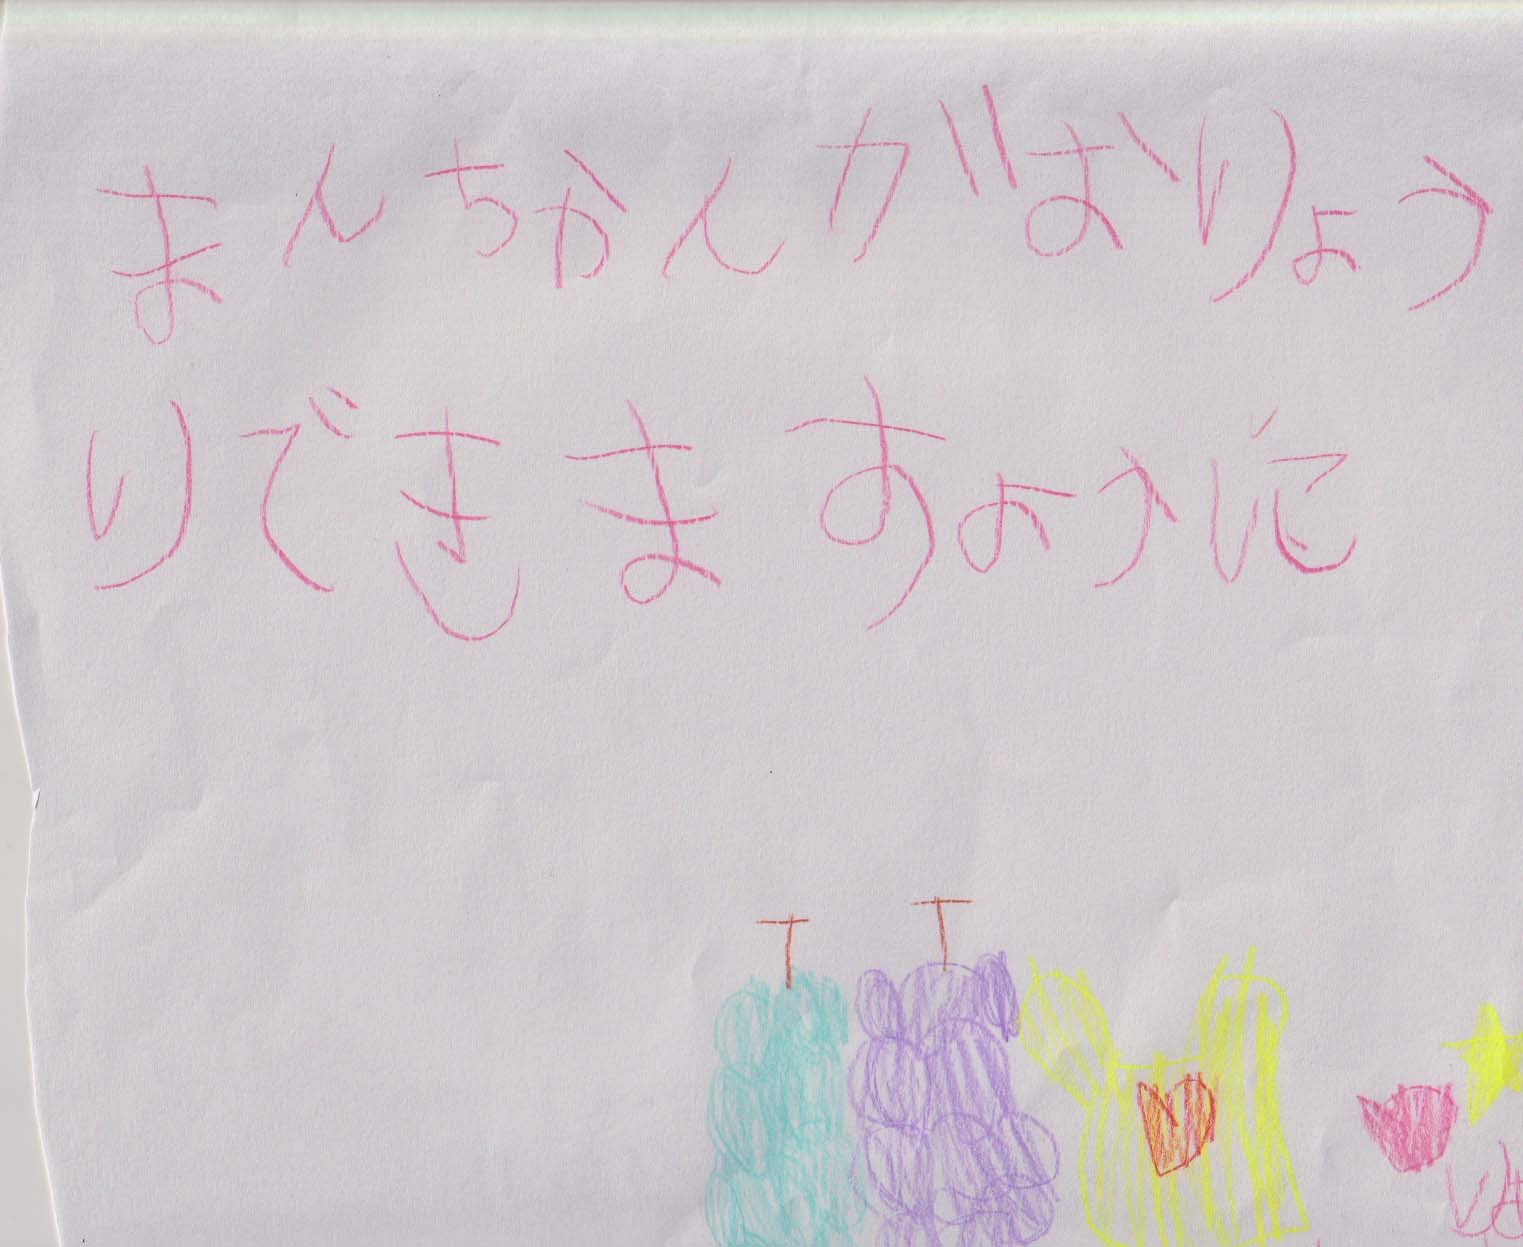 まんちかんがおりょう
りできますように